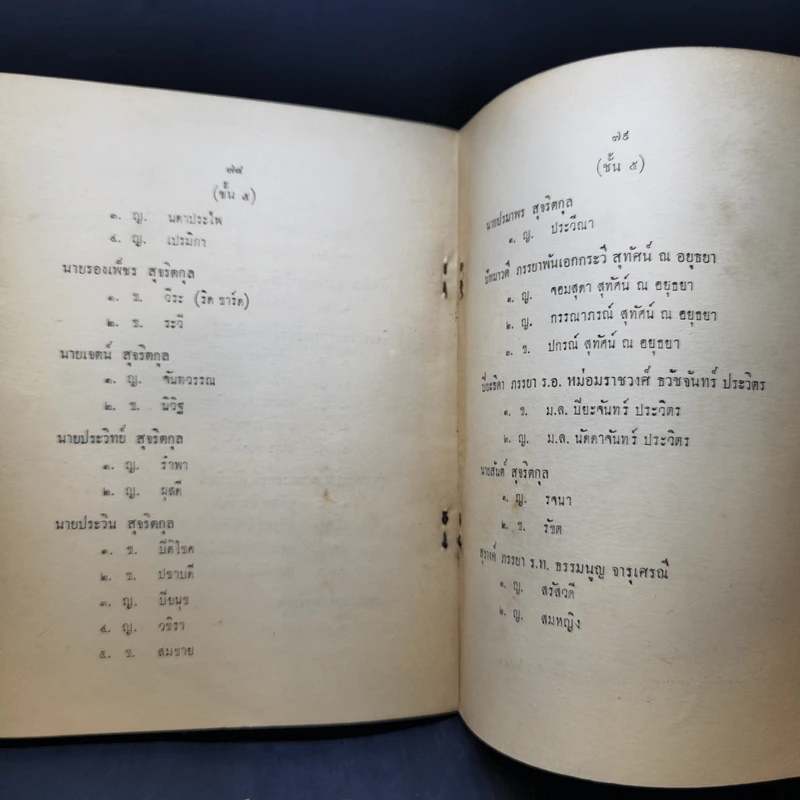 ๗๘
(ชั้น ๕)
๓. ญ. นตาประไพ
๔. ญ. เปรมิกา
นายรองเพ็ชร สุจริตกุล
๑. ช. วีระ (ริต ชาร์ด)
๒. ช. ระวี
นายเจตน์ สุจริตกุล
๑. ญ. จันทวรรณ
๒. ช. นิวิฐ
นายประวิทย์ สุจริตกุล
๑. ญ. รำพา
๒. ญ. ผุสดี
นายประวิน สุจริตกุล
๑. ช. ปีติโชค
๒. ช. ปชาบดี
๓. ญ. ปิยนุช
๔. ญ. วชิรา
๕. ช. สมชาย
๗๙
(ชั้น ๕)
นายปรมาพร สุจริตกุล
๑. ญ. ประวีณา
ปัทมาวดี ภรรยาพันเอกกระวี สุทัศน์ ณ อยุธยา
๑. ญ. จอมสุดา สุทัศน์ ณ อยุธยา
๒. ญ. กรรณาภรณ์ สุทัศน์ ณ อยุธยา
๓. ช. ปกรณ์ สุทัศน์ ณ อยุธยา
ปิยะธิดา ภรรยา ร.อ. หม่อมราชวงศ์ ธวัชจันทร์ ประวิตร
๑. ช. ม.ล. ปิยะจันทร์ ประวิตร
๒. ญ. ม.ล. นัดดาจันทร์ ประวิตร
นายสันต์ สุจริตกุล
๑. ญ. รจนา
๒. ช. รัชต
สุรางค์ ภรรยา ร.ท. ธรรมนูญ จารุเศรณี
๑. ญ. สรัสวดี
๒. ญ. สมหญิง